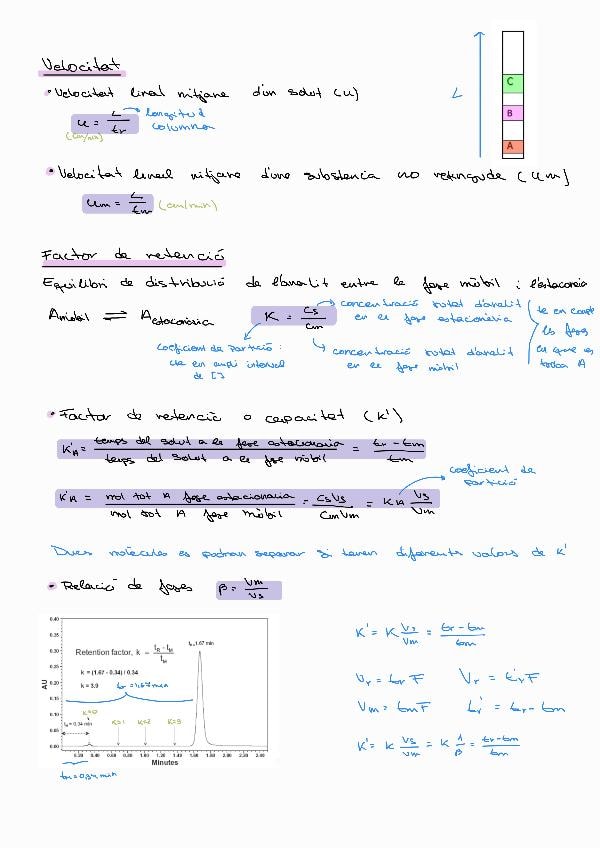 Velocitat
• Velocitat lineal mitjana d'un solut (u)
u = L/tr → longitud columna
(cm/min)
L
C
B
A
• Velocitat lineal mitjana d'una substancia no retinguda (um)
um = L/tm (cm/min)
Factor de retenció
Equilibri de distribució de l'analit entre la fase mòbil i l'estacionaria
Amòbil ⇌ Aestacionària
K = Cs/Cm
concentració total d'analit en la fase estacionària
concentració total d'analit en la fase mòbil
te en compte les fases en que es troba A
Coeficient de partició: cte en ampli interval de []
• Factor de retenció o capacitat (K')
K'A = temps del solut a la fase estacionaria / temps del solut a la fase mòbil = tr - tm / tm
K'A = mol tot A fase estacionaria / mol tot A fase mòbil = CsVs / CmVm = KA Vs/Vm
coeficient de partició
Dues molècules es podran separar si tenen diferents valors de K'
• Relació de fases β = Vm/Vs
Retention factor, k = tR - tM / tM
k = (1.67 - 0.34) / 0.34
k = 3.9
tr = 1,67 min
tR = 1.67 min
K=0
K=1
K=2
K=3
t0 = 0.34 min
AU
0.40
0.35
0.30
0.25
0.20
0.15
0.10
0.05
0.00
0.20 0.40 0.60 0.80 1.00 1.20 1.40 1.60 1.80 2.00 2.20 2.40
Minutes
tm = 0,34 min
K' = K Vs/Vm = tr - tm / tm
Vr = tr F V'r = t'r F
Vm = tm F t'r = tr - tm
K' = K Vs/Vm = K 1/β = tr - tm / tm